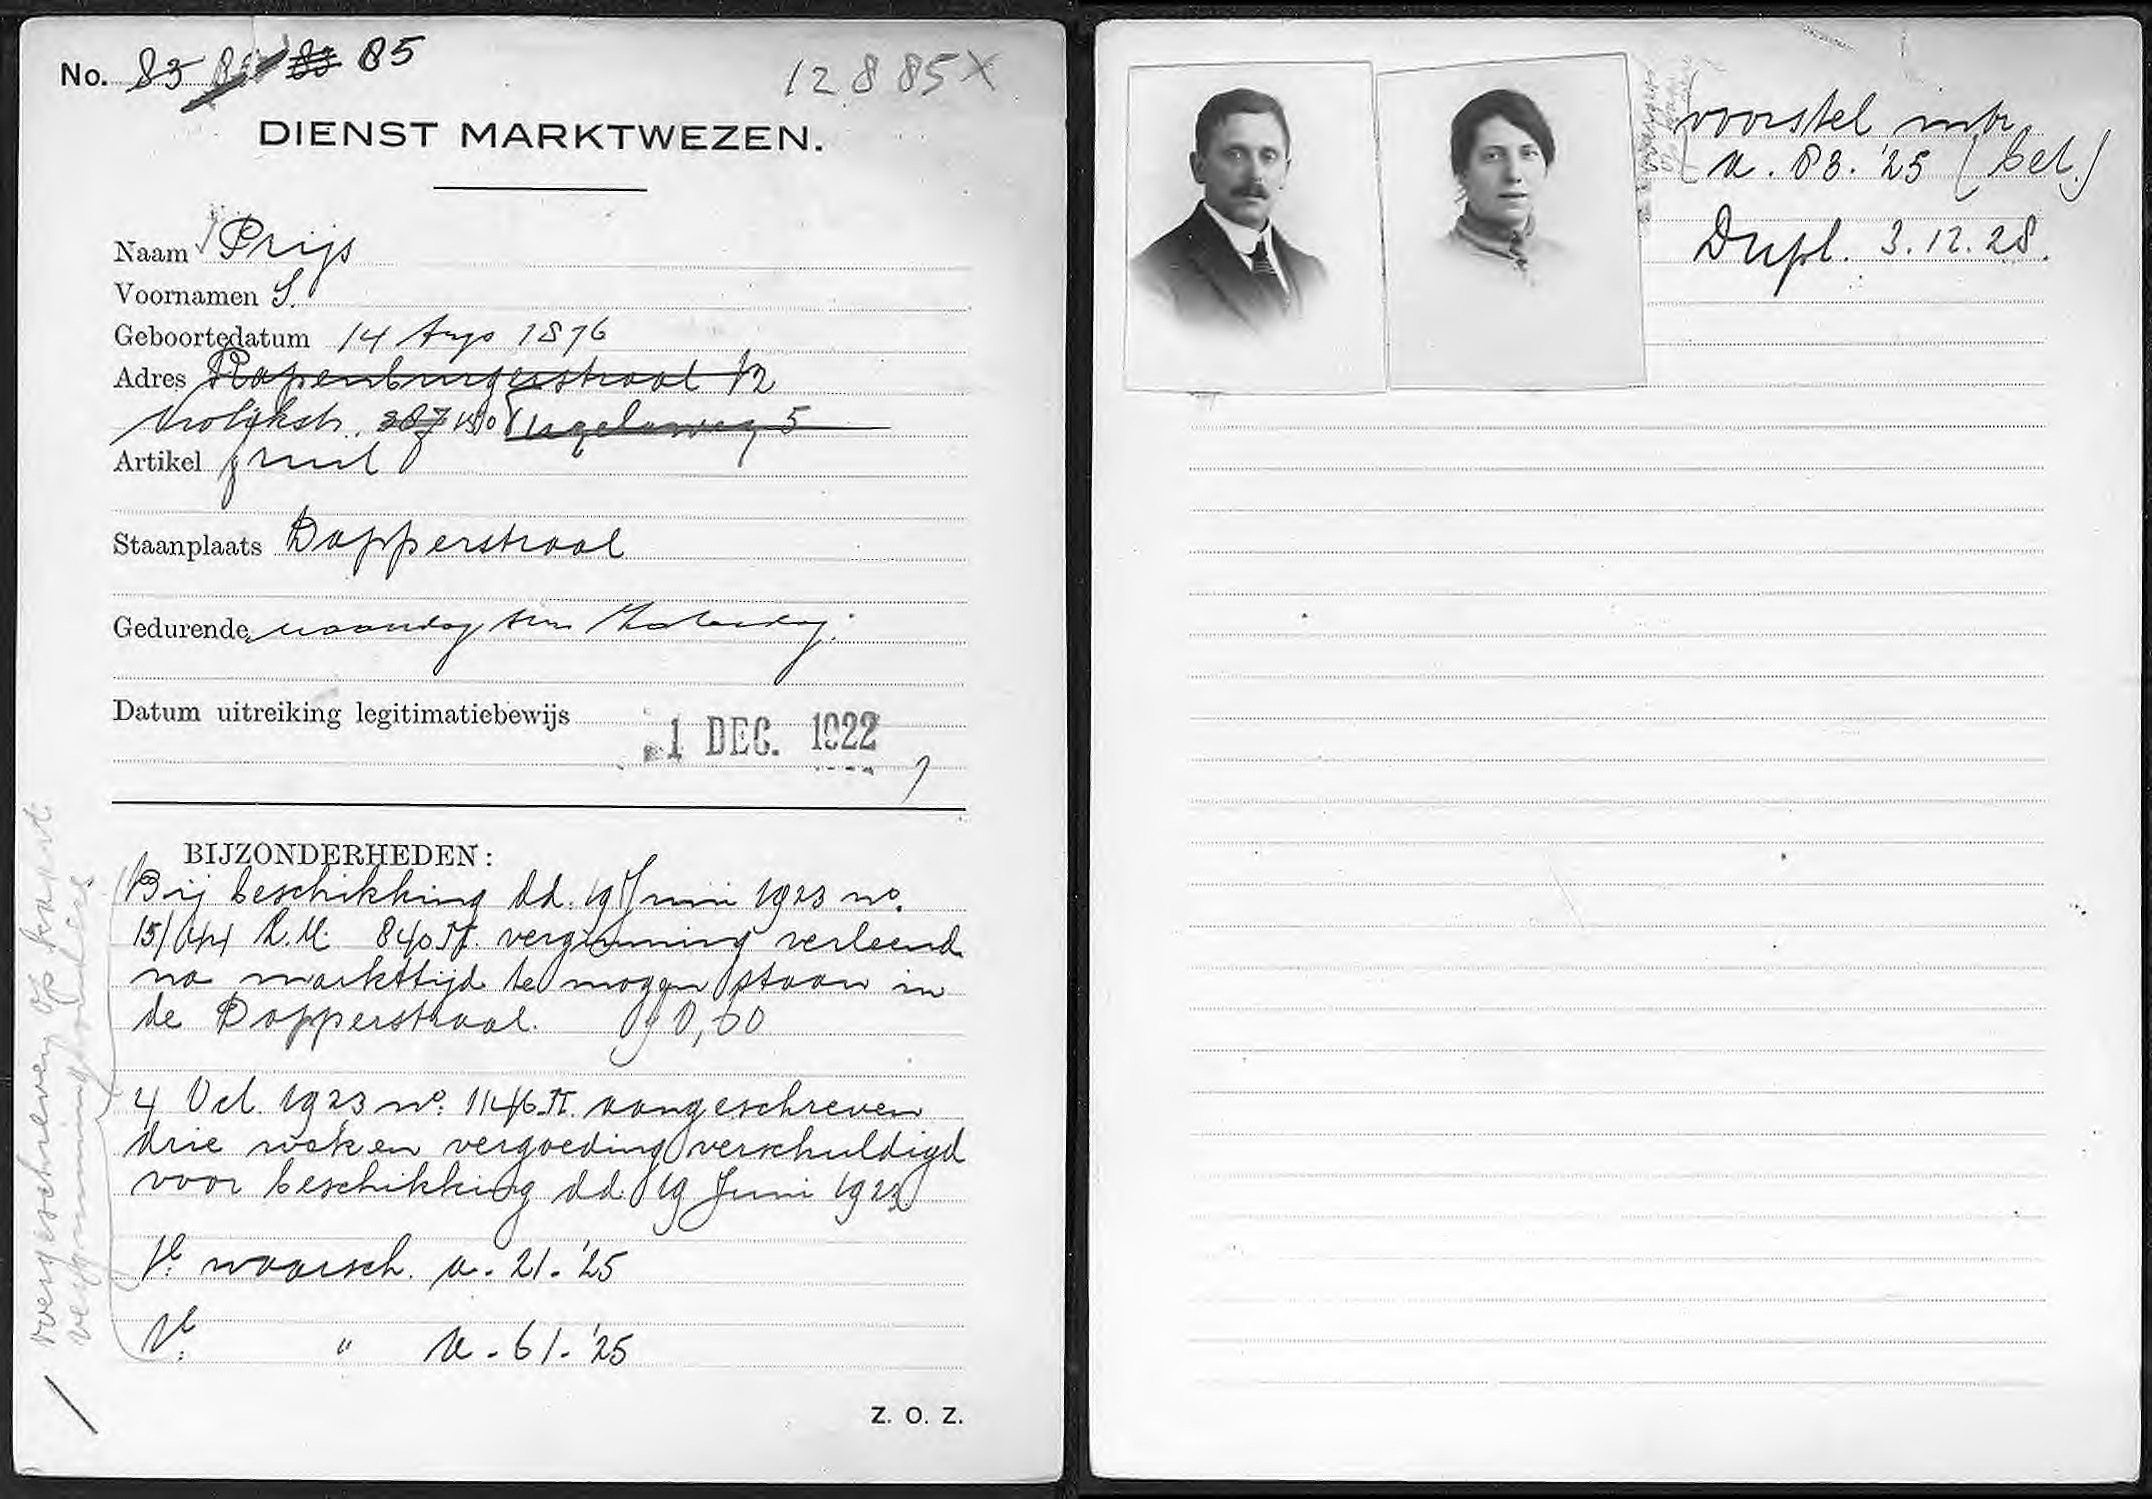 No. 83 85 83 85
12885X
DIENST MARKTWEZEN.
Naam Prijs
Voornamen S.
Geboortedatum 14 Aug 1876
Adres Rapenburgerstraat 12
Vrolijkstr. 207 180
Artikel fruit
Staanplaats Dapperstraat
Gedurende maandag t/m Zaterdag.
Datum uitreiking legitimatiebewijs
1 DEC. 1922
BIJZONDERHEDEN:
Bij beschikking dd. 19 Juni 1923 no.
15/044 L.M. 840 M. vergunning verleend
na markttijd te mogen staan in
de Dapperstraat. f 0,60
4 Oct. 1923 no. 1146 M. aangeschreven
drie weken vergoeding verschuldigd
voor beschikking dd. 19 Juni 1923
1e waarsch. a. 21. '25
1e " a. 61. '25
Z. O. Z.
overgeschreven op kaart
vergunninghouders
voorstel intr.
a. 83. '25 (bet.)
Dupl. 3.12.28.